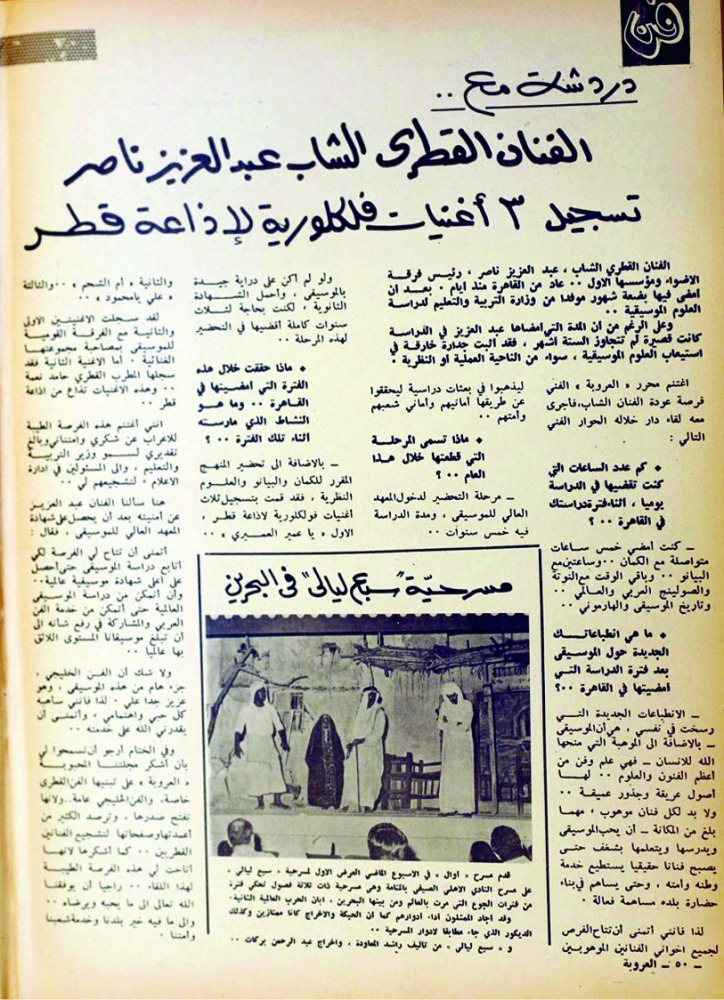 فن
دردشة مع ..
الفنان القطري الشاب عبد العزيز ناصر
تسجيل ٣ أغنيات فلكلورية لإذاعة قطر
الفنان القطري الشاب ، عبد العزيز ناصر ، رئيس فرقة
الاضواء ومؤسسها الاول .. عاد من القاهرة منذ ايام . بعد ان
امضى فيها بضعة شهور موفدا من وزارة التربية والتعليم لدراسة
العلوم الموسيقية ..
وعلى الرغم من أن المدة التي امضاها عبد العزيز في الدراسة
كانت قصيرة لم تتجاوز الستة اشهر ، فقد اثبت جدارة خارقة في
استيعاب العلوم الموسيقية ، سواء من الناحية العملية او النظرية .
اغتنم محرر « العروبة » الفني
فرصة عودة الفنان الشاب،فاجرى
معه لقاء دار خلاله الحوار الفني
التالي :
• كم عدد الساعات التي
كنت تقضيها في الدراسة
يوميا ، أثناءفترةدراستك
في القاهرة .. ؟
ـ كنت امضي خمس ساعات
متواصلة مع الكمان ..وساعتين مع
البيانو .. وباقي الوقت مع النوتة
والصولفيج العربي والعالمي ..
وتاريخ الموسيقى والهارموني ..
• ما هي انطباعاتك
الجديدة حول الموسيقى
بعد فترة الدراسة التي
امضيتها في القاهرة ..؟
ـ الانطباعات الجديدة التي
رسخت في نفسي ، هي أن الموسيقى
ـ بالاضافة الى الموهبة التي منحها
الله للانسان ـ فهي علم وفن من
أعظم الفنون والعلوم .. لها
أصول عريقة وجذور عميقة ..
ولا بد لكل فنان موهوب ، مهما
بلغ من المكانة ـ أن يحب الموسيقى
ويدرسها ويتعلمها بشغف حتى
يصبح فنانا حقيقيا يستطيع خدمة
وطنه وأمته ، وحتى يساهم في بناء
حضارة بلده مساهمة فعالة .
لذا فانني أتمنى أن تتاح الفرص
لجميع اخواني الفنانين الموهوبين
ليذهبوا في بعثات دراسية ليحققوا
عن طريقها أمانيهم وأماني شعبهم
وأمتهم ..
• ماذا تسمي المرحلة
التي قطعتها خلال هذا
العام .. ؟
ـ مرحلة التحضير لدخول المعهد
العالي للموسيقى ، ومدة الدراسة
فيه خمس سنوات ..
ولو لم اكن على دراية جيدة
بالموسيقى ، وأحمل الشهادة
الثانوية ، لكنت بحاجة لثلاث
سنوات كاملة أقضيها في التحضير
لهذه المرحلة ..
• ماذا حققت خلال هذه
الفترة التي امضيتها في
القاهرة .. وما هو
النشاط الذي مارسته
اثناء تلك الفترة .. ؟
ـ بالاضافة الى تحضير المنهج
المقرر للكمان والبيانو والعلوم
النظرية ، فقد قمت بتسجيل ثلاث
أغنيات فولكلورية لاذاعة قطر ،
الاول « يا عمير العميري » ..
والثانية « أم الشحم » ..والثالثة
« علي يامحمود » ..
لقد سجلت الاغنيتين الاولى
والثانية مع الفرقة القومية
للموسيقى بمصاحبة مجموعتها
الغنائية . أما الاغنية الثانية فقد
سجلها المطرب القطري حامد نعمة
.. وهذه الاغنيات تذاع من اذاعة
قطر ..
انني أغتنم هذه الفرصة الطيبة
للاعراب عن شكري وامتناني وبالغ
تقديري لسمو وزير التربية
والتعليم ، والى المسئولين في ادارة
الاعلام ، لتشجيعهم لي ..
هنا سألنا الفنان عبد العزيز
عن أمنيته بعد أن يحصل على شهادة
المعهد العالي للموسيقى ، فقال :
أتمنى أن تتاح لي الفرصة لكي
أتابع دراسة الموسيقى حتى أحصل
على أعلى شهادة موسيقية عالية..
وأن أتمكن من دراسة الموسيقى
العالمية حتى أتمكن من خدمة الفن
العربي والمشاركة في رفع شأنه الى
أن تبلغ موسيقانا المستوى اللائق
بها عالميا ..
ولا شك أن الفن الخليجي ،
جزء هام من هذه الموسيقى ، وهو
عزيز جدا علي . لذا فانني سأهبه
كل حبي واهتمامي ، وأتمنى أن
يقدرني الله على خدمته ..
وفي الختام أرجو أن تسمحوا لي
بأن أشكر مجلتنا المحبوبة
« العروبة » على تبنيها الفن القطري
خاصة، والفن الخليجي عامة..ولانها
تفتح صدرها ، وترصد الكثير من
أعمدتها وصفحاتها لتشجيع الفنانين
القطريين .. كما أشكرها لانها
أتاحت لي هذه الفرصة الطيبة
لهذا اللقاء .. راجيا أن يوفقنا
الله تعالى الى ما يحبه ويرضاه ..
والى ما فيه خير بلدنا وخدمة شعبنا
وأمتنا .
مسرحية "سبع ليالي" في البحرين
قدم مسرح « أوال » في الاسبوع الماضي العرض الاول لمسرحية « سبع ليالي »
على مسرح النادي الاهلي الصيفي بالمنامة وهي مسرحية ذات ثلاثة فصول تحكي فترة
من فترات الجوع التي مرت بالعالم ومن بينها البحرين ، ابان الحرب العالمية الثانية.
وقد أجاد الممثلون أداء أدوارهم كما أن الحبكة والاخراج كانا ممتازين وكذلك
الديكور الذي جاء مطابقا لادوار المسرحية ..
و « سبع ليالي » من تأليف راشد المعاودة ، واخراج عبد الرحمن بركات ..
ـ ٥٠ ـ العروبة